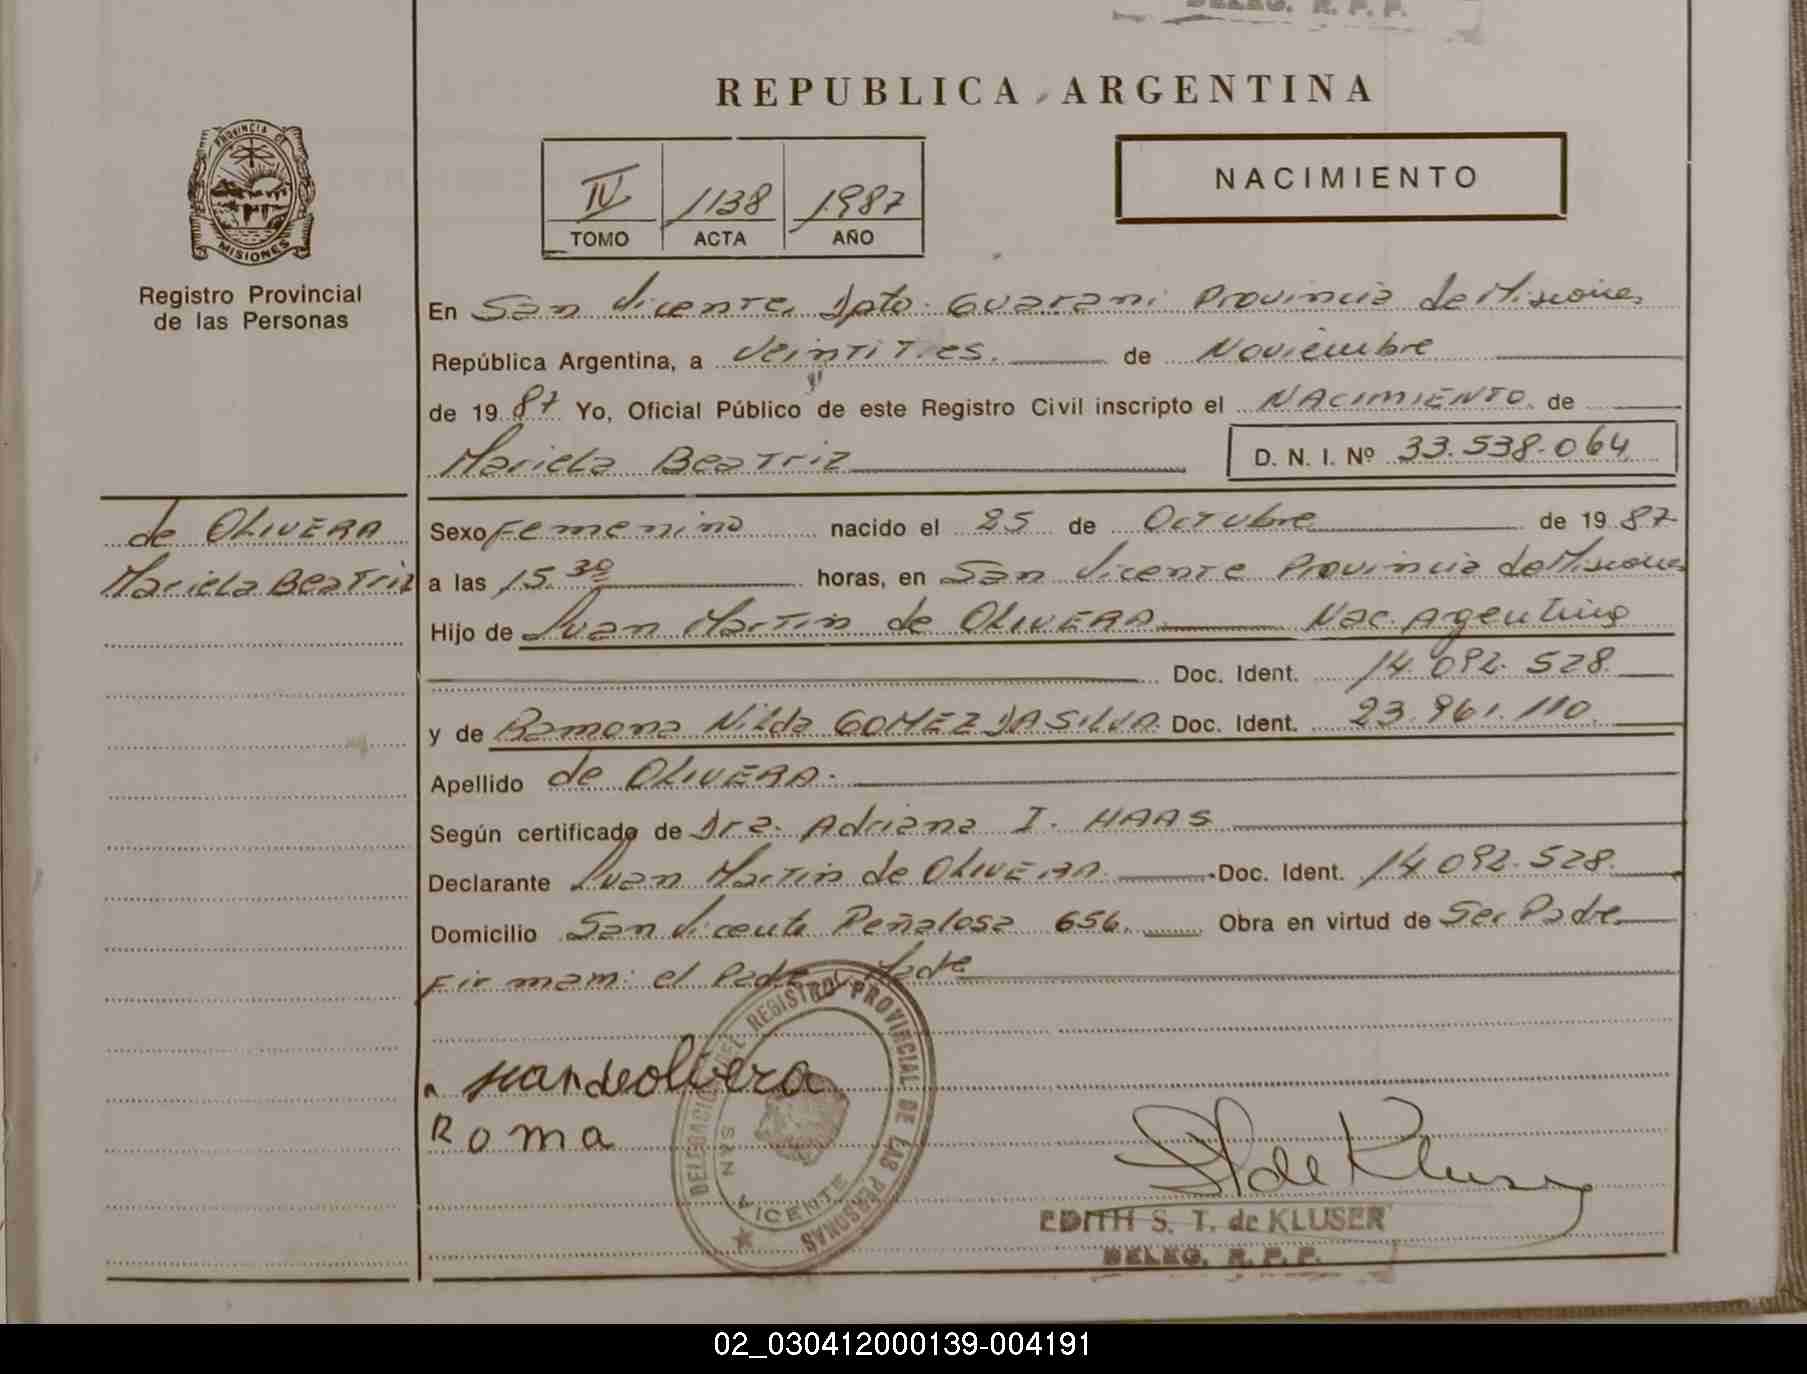 DELEG. R. P. P.
REPUBLICA ARGENTINA
PROVINCIA DE
MISIONES
Registro Provincial
de las Personas
IV 1138 1987
TOMO ACTA AÑO
NACIMIENTO
En San Vicente, Dpto. Guarani Provincia de Misiones
República Argentina, a Veintitres. de Noviembre
de 1987 Yo, Oficial Público de este Registro Civil inscripto el NACIMIENTO de
Mariela Beatriz
D. N. I. Nº 33.538.064
de OLIVERA
Mariela Beatriz
Sexo Femenino nacido el 25 de Octubre de 1987
a las 15.30 horas, en San Vicente Provincia de Misiones
Hijo de Juan Martin de OLIVERA Nac. Argentino
Doc. Ident. 14.092.528
y de Ramona Nilda GOMEZ DA SILVA Doc. Ident. 23.961.110
Apellido de OLIVERA.
Según certificado de Dra. Adriana I. HAAS
Declarante Juan Martin de OLIVERA Doc. Ident. 14.092.528
Domicilio San Vicente Peñalosa 656. Obra en virtud de Ser Padre
Firmam: el Padre y Made
juandeolivera
Roma
DELEGACION DEL REGISTRO PROVINCIAL DE LAS PERSONAS
SAN VICENTE
EDITH S. T. de KLUSER
DELEG. R. P. P.
02_030412000139-004191